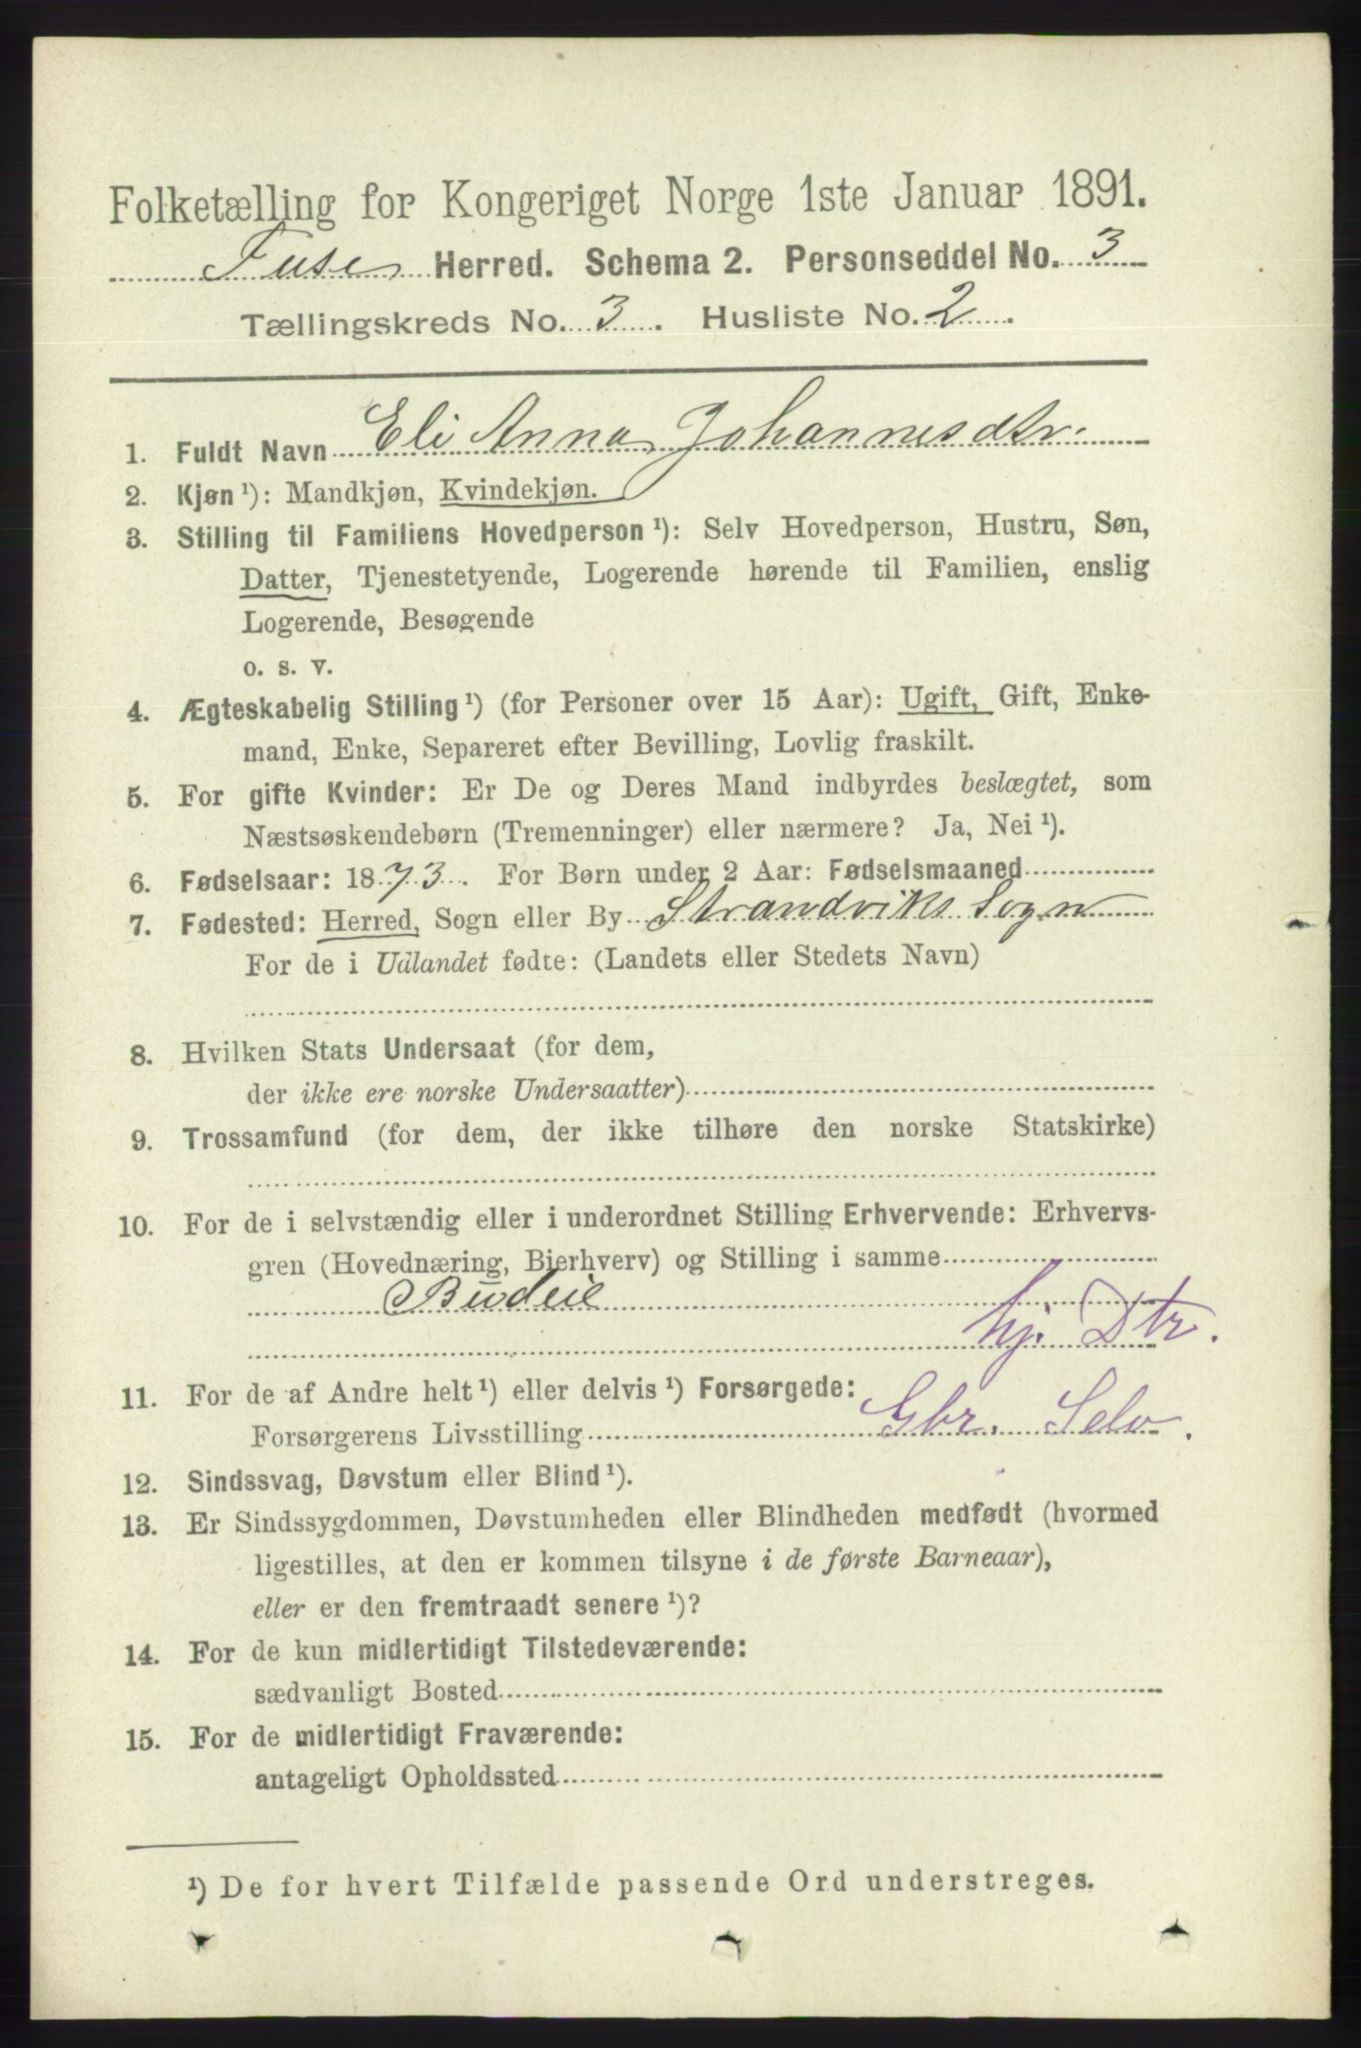 Folketælling for Kongeriget Norge 1ste Januar 1891.
Fuse Herred. Schema 2. Personseddel No. 3
Tællingskreds No. 3. Husliste No. 2.
1. Fuldt Navn Eli Anna Johannesdtr.
2. Kjøn ¹): Mandkjøn, Kvindekjøn.
3. Stilling til Familiens Hovedperson ¹): Selv Hovedperson, Hustru, Søn,
Datter, Tjenestetyende, Logerende hørende til Familien, enslig
Logerende, Besøgende
o. s. v.
4. Ægteskabelig Stilling ¹) (for Personer over 15 Aar): Ugift, Gift, Enke-
mand, Enke, Separeret efter Bevilling, Lovlig fraskilt.
5. For gifte Kvinder: Er De og Deres Mand indbyrdes beslægtet, som
Næstsøskendebørn (Tremenninger) eller nærmere? Ja, Nei ¹).
6. Fødselsaar: 1873. For Børn under 2 Aar: Fødselsmaaned
7. Fødested: Herred, Sogn eller By Strandviks Sogn
For de i Udlandet fødte: (Landets eller Stedets Navn)
8. Hvilken Stats Undersaat (for dem,
der ikke ere norske Undersaatter)
9. Trossamfund (for dem, der ikke tilhøre den norske Statskirke)
10. For de i selvstændig eller i underordnet Stilling Erhvervende: Erhvervs-
gren (Hovednæring, Bierhverv) og Stilling i samme
Budeie
hj. Dtr.
11. For de af Andre helt ¹) eller delvis ¹) Forsørgede:
Forsørgerens Livsstilling Gbr. Selv.
12. Sindssvag, Døvstum eller Blind ¹).
13. Er Sindssygdommen, Døvstumheden eller Blindheden medfødt (hvormed
ligestilles, at den er kommen tilsyne i de første Barneaar),
eller er den fremtraadt senere ¹)?
14. For de kun midlertidigt Tilstedeværende:
sædvanligt Bosted
15. For de midlertidigt Fraværende:
antageligt Opholdssted
¹) De for hvert Tilfælde passende Ord understreges.